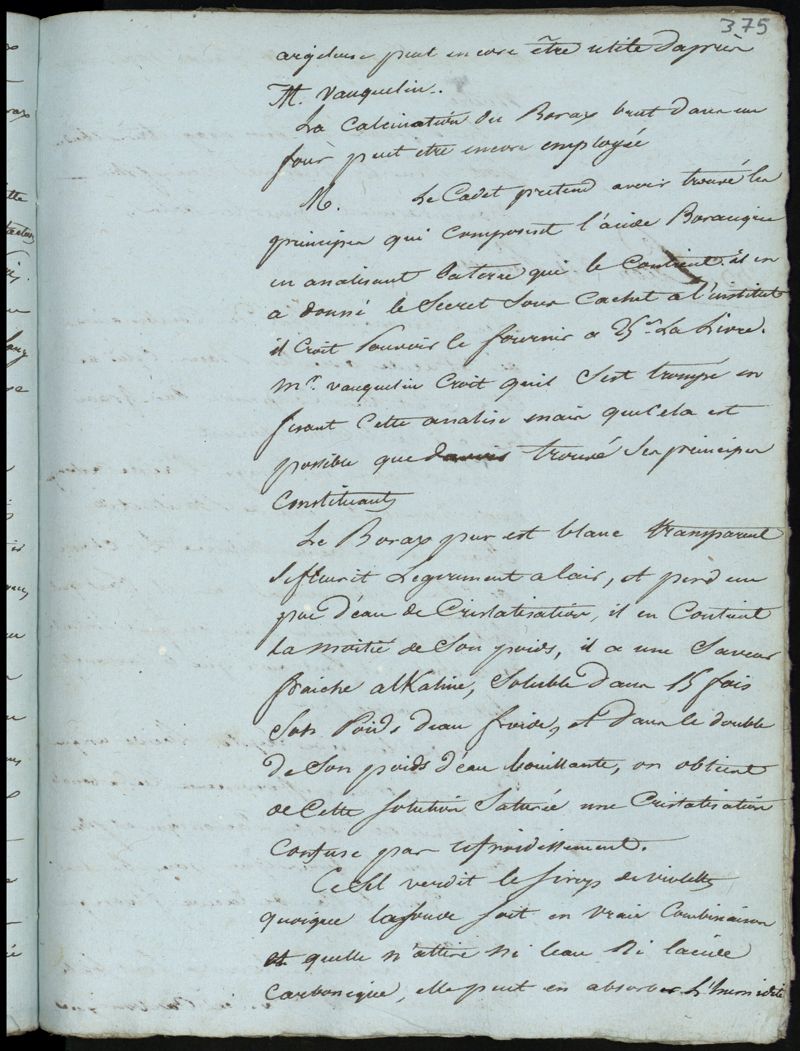 375
argeleuse peut encore être utile d'après
M. Vauquelin.
La Calcination du Borax brut dans un
four peut etre encore employée
M. Le Cadet pretend avoir trouvé les
principes qui composent l'acide Boracique
en analisant la terre qui le Contient il en
a donné le Secret Sous Cachet a l'institut
il Croit Pouvoir le fournir a 25s La Livre.
mr. vauquelin Croit quil S'est trompé en
fesant Cette analise mais que Cela est
possible que davoir trouvé Ses principes
Constituants
Le Borax pur est blanc transparent
Sefleurit Legerement a lair, et perd un
peu d'eau de Cristalisation, il en Contient
La moitié de Son poids, il a une Saveur
fraiche alkaline, Soluble dans 15 fois
Son Poids d'eau froide, et dans le double
de Son poids d'eau bouillante, on obtient
de Cette Solution Saturée une Cristalisation
Confuse par refroidissement.
Ce Sel verdit le Sirop de violettes
quoique la soude soit en vraie Combinaison
et quelle n'attire ni leau Ni lacide
Carbonique, elle peut en absorber L'humidité